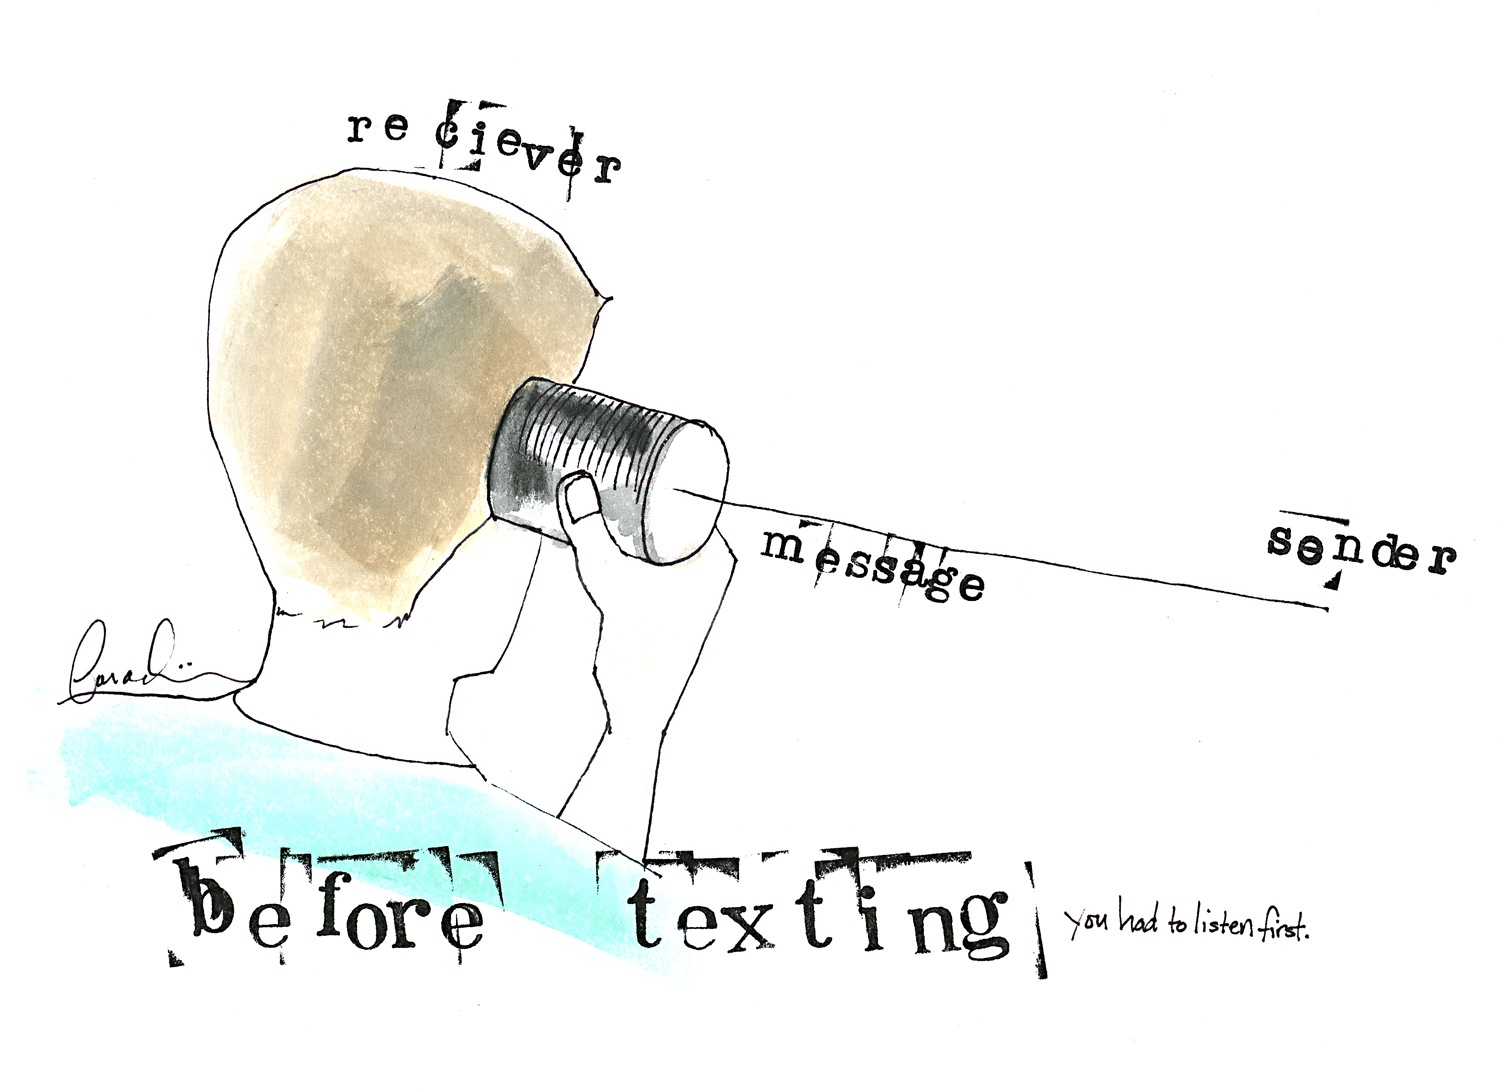 reciever
message
sender
before texting
you had to listen first.